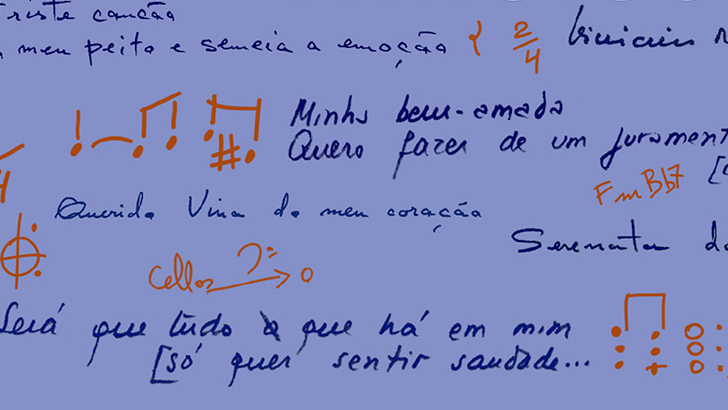 triste canção
meu peito e semeia a emoção
2/4
Vinicius
Minha bem-amada
Quero fazer de um jurament
Fm Bb7
Querido Vina do meu coração
Serenata do
Cellos
Será que tudo que há em mim
[só quer sentir saudade...